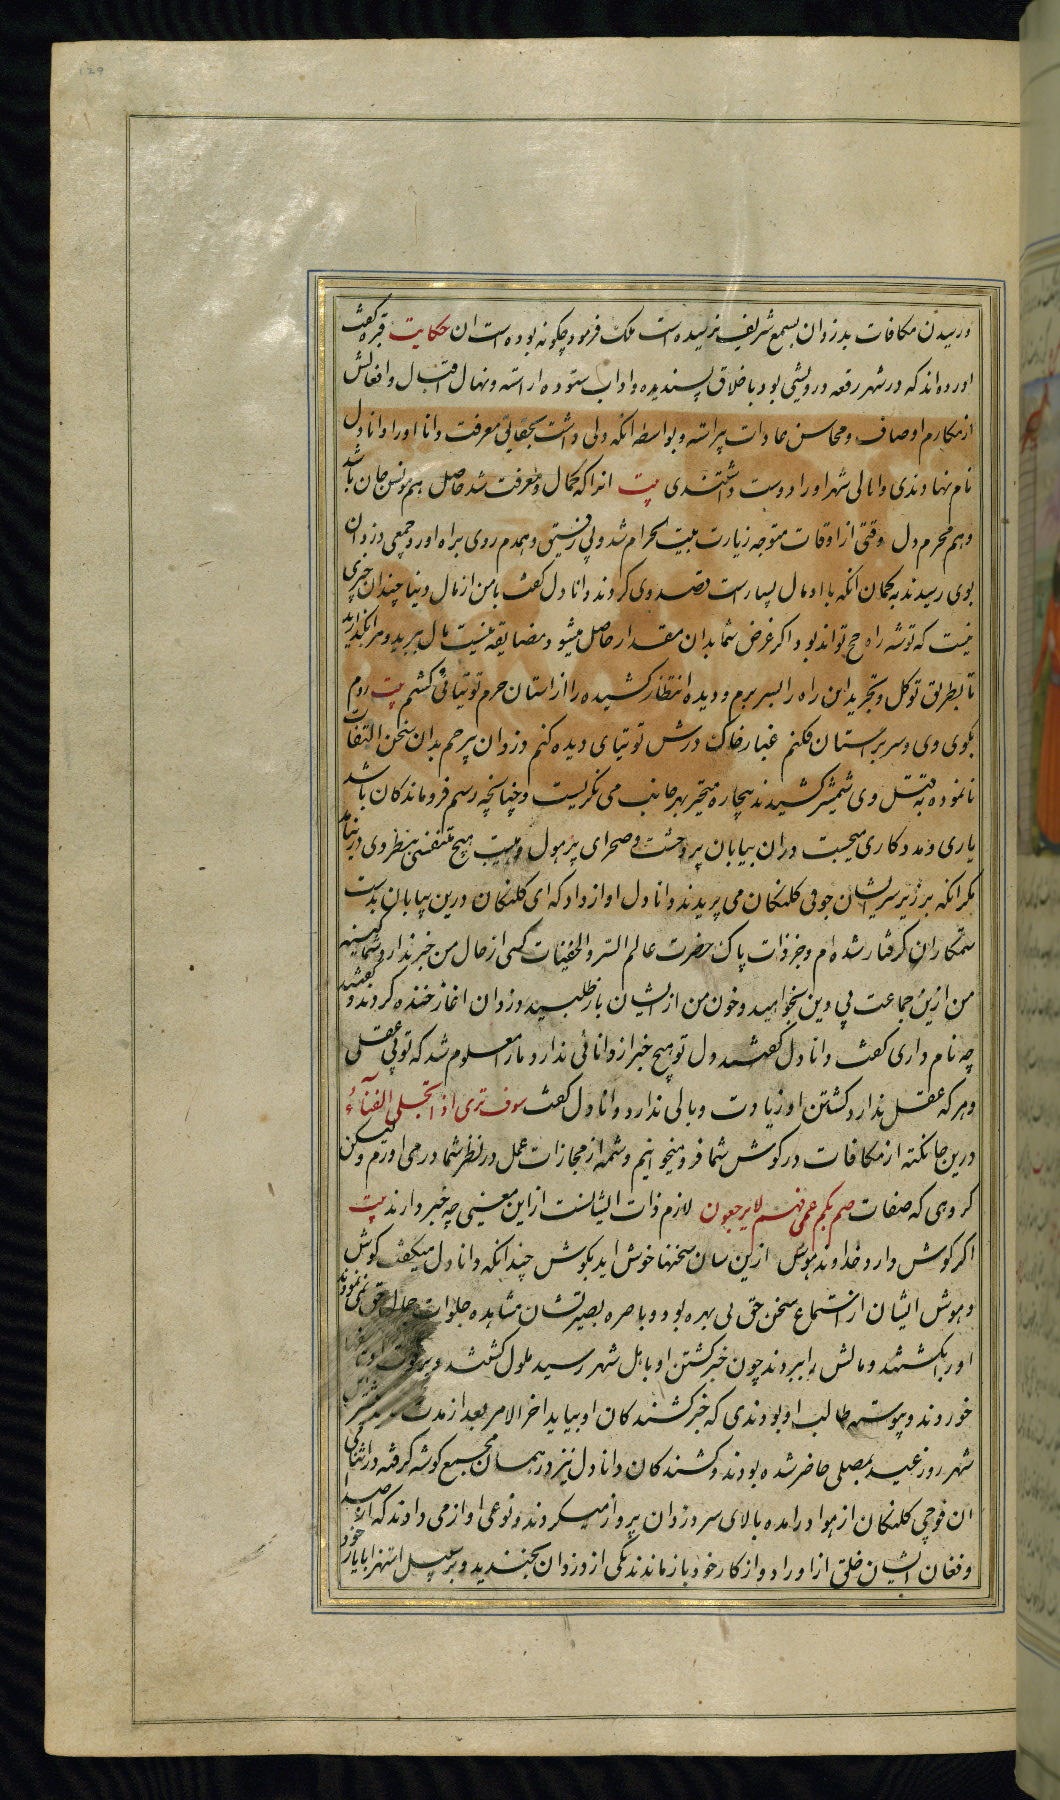 129
و رسیدن مکافات بدزدان بسمع شریف نرسیده است ملک فرمود چکونه بوده است ان حکایت قبره کفت
اورده‌اند که در شهر رقه درویشی بود باخلاق پسندیده و اداب ستوده اراسته و نهال اقبال و افعالش
از مکارم اوصاف و محاسن عادات پیراسته و بواسطه انکه دلی داشت بحقایق معرفت دانا اورا دانادل
نام نهادندی و اهالی شهر اورا دوست داشتندی بیت انرا که کمال و معرفت شد حاصل هم مونس جان باشد
و هم محرم دل وقتی از اوقات متوجه زیارت بیت الحرام شد و بی رفیق و همدم روی براه اورد جمعی دزدان
بوی رسیدند بکمان انکه با او مال بسیارست قصد وی کردند دانادل کفت با من از مال دنیا چندان چیزی
نیست که توشه راه حج تواند بود اکر غرض شما بدان مقدار حاصل میشود مضایقه نیست مال ببرید و مرا بکذارید
تا بطریق توکل و تجرید این راه را بسر برم و دیده انتظار کشیده را از استان حرم توتیائی کشم بیت روم
بکوی وی و سر بر استان فکنم غبار خاک درش توتیای دیده کنم دزدان پرحم بدان سخن التفات
نانموده بقتل وی شمشیر کشیدند بیچاره متحیر بهر جانب می نکریست و چنانچه رسم فروماندکان باشد
یاری و مددکاری میجست دران بیابان پر وحشت و صحرای پر هول و هیبت هیچ متنفسی بنظر وی درنیامد
مکر انکه بر زیر سر ایشان جوقی کلنکان می پریدند دانادل اواز داد که ای کلنکان درین بیابان بدست
ستمکاران کرفتار شده‌ام و جز ذات پاک حضرت عالم السر و الخفیات کسی از حال من خبر ندارد شما کینه
من ازین جماعت بی دین بخواهید و خون من از ایشان باز طلبید دزدان اغاز خنده کردند و کفتند
چه نام داری کفت دانادل کفتند دل تو هیچ خبر از دانائی ندارد مارا معلوم شد که تو بی عقلی
و هر که عقل ندارد کشتن او زیادت وبالی ندارد دانادل کفت سوف تری اذا تجلی الغبآء
درین جا نکته از مکافات در کوش شما فرو میخوانم و شمه از مجازات عمل در نظر شما در می اورم ولیکن
کروهی که صفات صم بکم عمی فهم لا یرجعون لازم ذات ایشانست از این معنی چه خبر دارند بیت
اکر کوش دارد خداوند هوش ازین سان سخنها خوش اید بکوش چندانکه دانادل میکفت کوش
و هوش ایشان از استماع سخن حق بی بهره بود و باصره بصیرتشان مشاهده جلوات جمال حق نمی نمود
اورا بکشتند و مالش را ببردند چون خبر کشتن او باهل شهر رسید ملول کشتند و بر
خوردند و پیوسته طالب او بودندی که خبر کشندکان او بیابد اخر الامر بعد از مدت
شهر روز عید بمصلی حاضر شده بودند و کشندکان دانادل نیز در همان مجمع کوشه کرفته در اثنای
ان فوجی کلنکان از هوا درامده بالای سر دزدان پرواز میکردند و نوعی اواز می دادند که از صدا
و فغان ایشان خلق از اوراد و اذکار خود باز ماندند یکی از دزدان بخندید و بر سبیل استهزا با یار خود